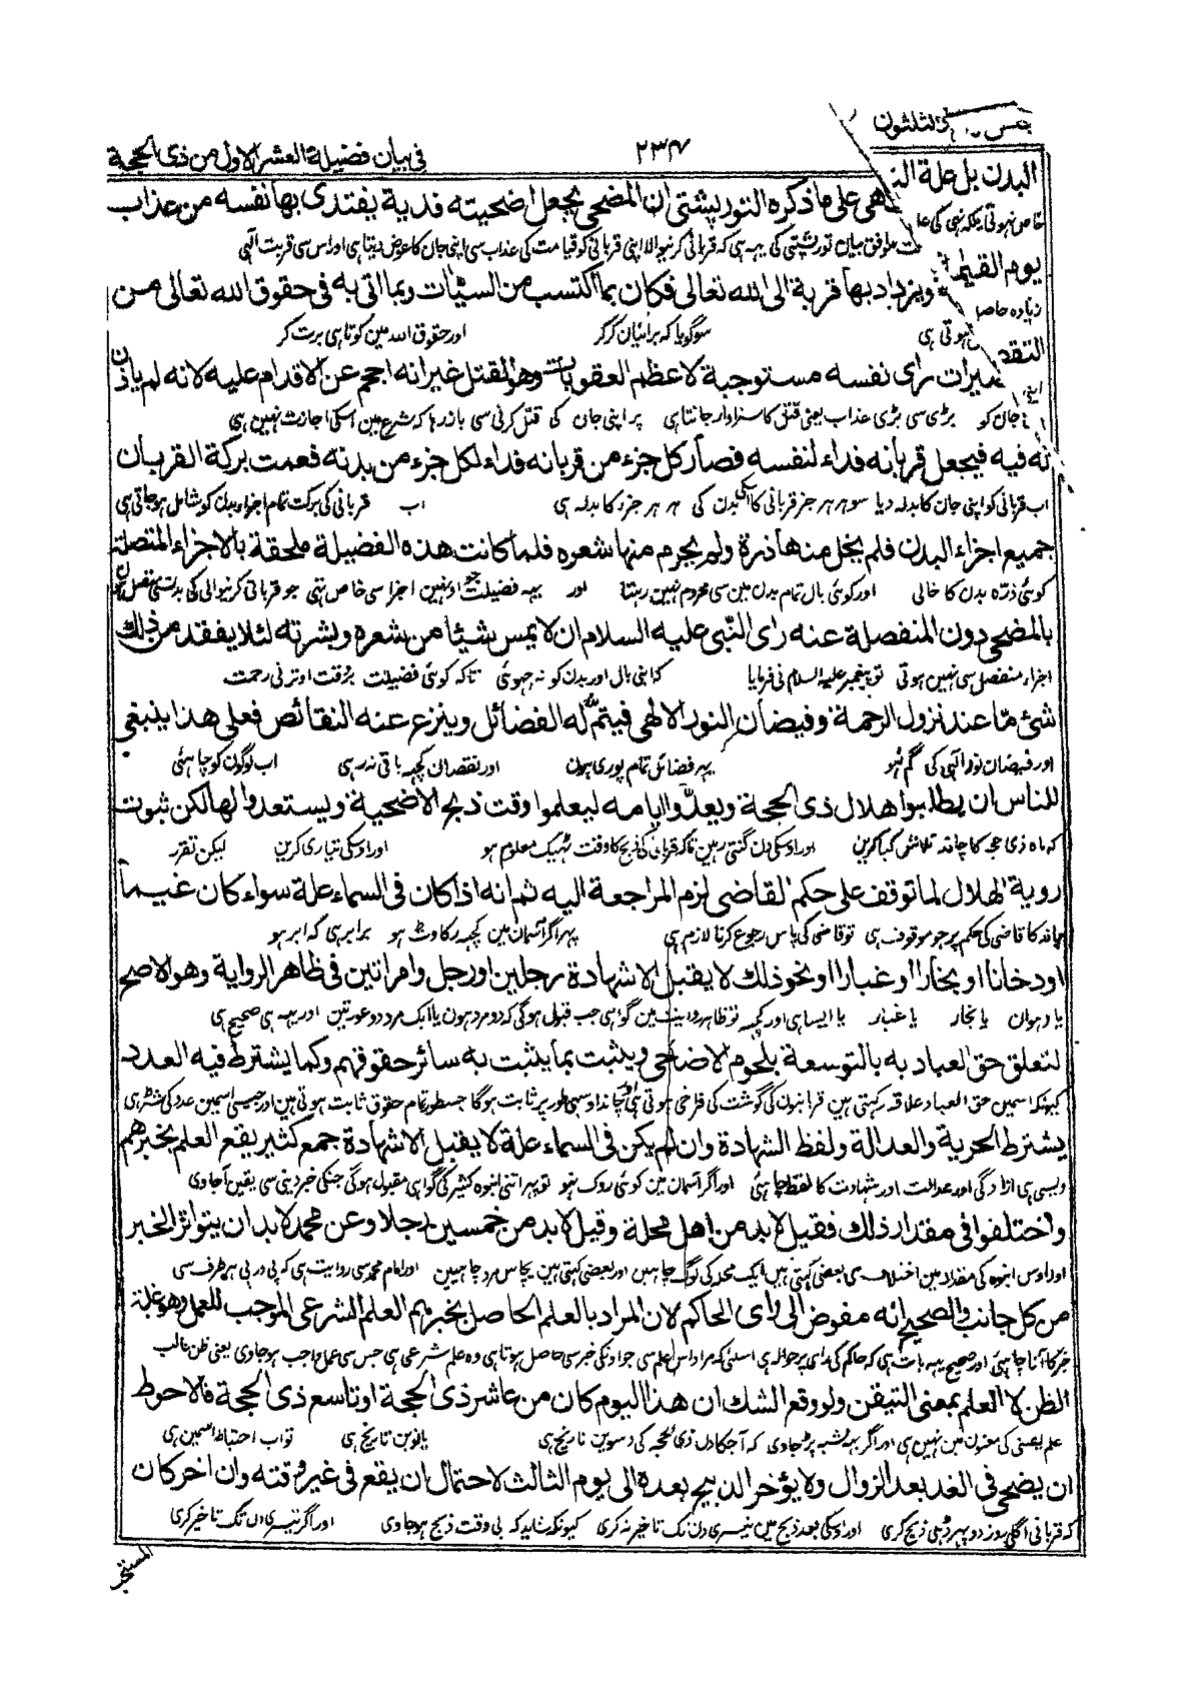 الثلثون ٢٣٧ فی بیان فضیلة العشر الاول من ذی الحجة
البدن بل علة هی علی ماذکره التورپشتی ان المضحی یجعل اضحیته فدیة یفتدی بها نفسه من عذاب
خاص نہوتی بلکہ نہی کی موافق بیان تورپشتی کی یہہ ہی کہ قربانی کرنیوالا اپنی قربانی کو قیامت کی عذاب سی اپنی جان کا عوض دیتا ہی اور اس سی قربت آلہی
یوم القیمة ویزداد بها قربة الی الله تعالی فکان بما اکتسب من السیئات وبما اتی به فی حقوق الله تعالی من
زیادہ حاصل ہوتی ہی سو گویا کہ برائیان کرکر اور حقوق اللہ مین کوتاہی برت کر
التقصیرات رای نفسه مستوجبة لاعظم العقوبات وهو القتل غیر انه احجم عن الاقدام علیه لانه لم یاذن
اپنی جان کو بڑی سی بڑی عذاب یعنی قتل کا سزاوار جانتا ہی پر اپنی جان کی قتل کرنی سی باز رہا کہ شرع مین اسکی اجازت نہین ہی
له فیه فیجعل قربانه فداء لنفسه فصار کل جزء من قربانه فداء لکل جزء من بدنه فعمت برکة القربان
اب قربانی کو اپنی جان کا بدلہ دیا سو ہر ہر جز قربانی کا اسکی بدن کی ہر ہر جز کا بدلہ ہی اب قربانی کی برکت تمام اجزاء بدن کو شامل ہوجاتی ہی
جمیع اجزاء البدن فلم یخل منها ذرة ولم یحرم منها شعره فلما کانت هذه الفضیلة ملحقة بالاجزاء المتصلة
کوئی ذرہ بدن کا خالی اور کوئی بال تمام بدن مین سی محروم نہین رہتا اور یہہ فضیلت جو اونہین اجزا سی خاص تہی جو قربانی کرنیوالی کی بدن سی متصل ہون
بالمضحی دون المنفصلة عنه رای النبی علیه السلام ان لا یمس شیئا من شعره وبشرته لئلا یفقد من ذلك
اجزاء منفصل سی نہین ہوتی تو پیغمبر علیہ السلام نی فرمایا کہ اپنی بال اور بدن کو نہ چہوئی تاکہ کوئی فضیلت بروقت اوترنی رحمت
شئ ما عند نزول الرحمة وفیضان النور الالهی فیتم له الفضائل وینزع عنه النقائص فعلی هذا ینبغی
اور فیضان نور آلہی کی گم نہو یہہ فضائل تمام پوری ہون اور نقصان کچہہ باقی نہ رہی اب لوگون کو چاہئی
للناس ان یطلبوا هلال ذی الحجة ویعدوا ایامه لیعلموا وقت ذبح الاضحیة ویستعدوا لها لکن ثبوت
کہ ماہ ذی حجہ کا چاند تلاش کیا کرین اور اوسکی دن گنتی رہین تاکہ قربانی کی ذبح کا وقت ٹہیک معلوم ہو اور اوسکی تیاری کرین لیکن تقرر
رویة الهلال لما توقف علی حکم القاضی لزم المراجعة الیه ثم انه اذا کان فی السماء علة سواء کان غیما
چاند کا قاضی کی حکم پر جو موقوف ہی تو قاضی کی پاس رجوع کرنا لازم ہی پہر اگر آسمان مین کچہہ رکاوٹ ہو برابر ہی کہ ابر ہو
او دخانا او بخارا او غبارا او نحو ذلك لا یقبل الا شهادة رجلین او رجل وامراتین فی ظاهر الروایة وهو الاصح
یا دہوان یا بخار یا غبار یا ایسا ہی اور کچہہ تو ظاہر روایت مین گواہی جب قبول ہوگی کہ دو مرد ہون یا ایک مرد دو عورتین اور یہہ ہی صحیح ہی
لتعلق حق العباد به بالتوسعة بلحوم الاضاحی ویثبت بما یثبت به سائر حقوقهم وکما یشترط فیه العدد
کیونکہ اسمین حق العباد علاقہ رکہتی ہین قربانیون کی گوشت کی فراخی ہوتی ہی چاند اوسی طور پر ثابت ہوگا جسطور تمام حقوق ثابت ہوتی ہین اور جیسی اسمین عدد کی شرط ہی
یشترط الحریة والعدالة ولفظ الشهادة وان لم یکن فی السماء علة لا یقبل الا شهادة جمع کثیر یقع العلم بخبرهم
ویسی ہی آزادگی اور عدالت اور شہادت کا لفظ چاہئی اور اگر آسمان مین کوئی روک نہو تو پہر اتنی انبوہ کثیر کی گواہی مقبول ہوگی جنکی خبر دینی سی یقین آجاوی
واختلفوا فی مقدار ذلك فقیل لابد من اهل محلة وقیل لابد من خمسین رجلا وعن محمد لابد ان یتواتر الخبر
اور اوس انبوہ کی مقدار مین اختلاف ہی بعضی کہتی ہین ایک محلہ کی لوگ چاہین اور بعضی کہتی ہین پچاس مرد چاہیین اور امام محمد سی روایت ہی کہ پی در پی ہر طرف سی
من کل جانب والصحیح انه مفوض الی رای الحاکم لان المراد بالعلم الحاصل بخبرهم العلم الشرعی الموجب للعمل وهو غلبة
خبر کا آنا چاہئی اور صحیح یہہ بات ہی کہ حاکم کی رای پر حوالہ ہی اسلئی کہ مراد اس علم سی جو اونکی خبر سی حاصل ہوتا ہی وہ علم شرعی ہی جس سی عمل واجب ہوجاوی یعنی ظن غالب
الظن لا العلم بمعنی التیقن ولو وقع الشك ان هذا الیوم کان من عاشر ذی الحجة او تاسع ذی الحجة فالاحوط
علم یعنی کی معنون مین نہین ہی اور اگر یہہ شبہ پڑجاوی کہ آجکا دن ذی حجہ کی دسوین تاریخ ہی یا نوین تاریخ ہی تو اب احتیاط اسمین ہی
ان یضحی فی الغد بعد الزوال ولا یؤخر الذبیح بعده الی یوم الثالث لاحتمال ان یقع فی غیر وقته وان اخر کان
کہ قربانی اگلی روز دوپہر ڈہلی ذبح کری اور اوسکی بعد ذبح مین تیسری دن تک تاخیر نہ کری کیونکہ شاید کہ بی وقت ذبح ہوجاوی اور اگر تیسری دن تک تاخیر کری